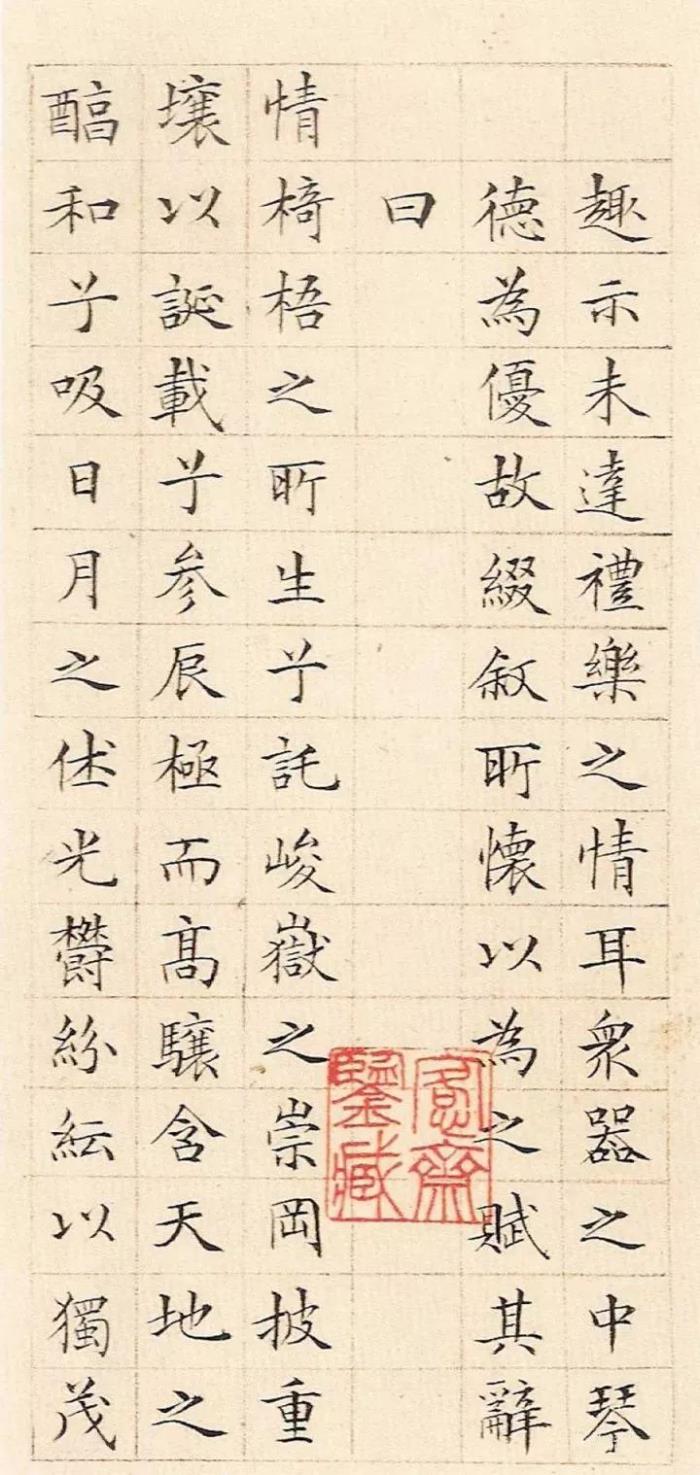 趣示未達禮樂之情耳衆器之中琴
德為優故綴叙所懷以為之賦其辭
曰
情椅梧之所生兮託峻嶽之崇岡披重
壤以誕載兮参辰極而高驤含天地之
醕和兮吸日月之休光鬱紛紜以獨茂
愙齋
鑒藏